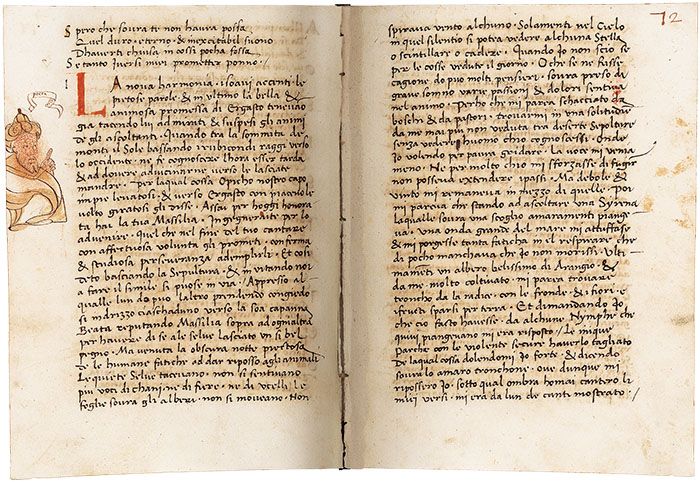 Spero che soura ti non havra possa
Quel duro · eterno · & inexcitabil suono
Dhaverti chiusa in così pocha fossa
Se tanto iversi miei prometter ponno ·
poeta
La nova harmonia · i soavi accenti · le
pietose parole · & in ultimo la bella &
animosa promessa di Ergasto tenivano
gia tacendo lui admirati & suspesi gli animi
de gli ascoltanti · Quando tra la sommita de
monti il Sole bassando i rubicondi raggi verso
lo occidente · ne fe cognoscere lhora esser tarda
& ad dovere advicinarne verso le lasciate
mandre · Per laqual cossa Opicho nostro capo
in pie levatosi · & verso Ergasto con piacevole
volto giratosi gli disse · Assai per hoggi honora
ta hai la tua Massilia · Ingegnerraite per lo
advenire · Quel che nel fine del tuo cantare
con affectuosa volunta gli prometi · con ferma
& studiosa perseveranza adempirli · Et cosi
detto basciando la Sepultura · & in vitando noi
a fare il simile si puose in via · Appresso al
qualle lun do puo laltro prendendo congiedo
si indrizzo ciaschaduno verso la soa capanna
Beata reputando Massilia sopra ad ogni altra
per havere di se ale selve lasciato un si bel
pegno · Ma venuta la obscura notte pietosa
de le humane fatiche ad dar reposso agli animali
Le quiete Selve tacevano · non si sentivano
piu voci di chani · ne di fiere · ne di ucelli · le
foglie soura gli alberi · non si moveano · Non
72
spirava vento alchuno · Solamenti nel Cielo
in quel silentio si potea vedere alchuna Stella
o scintillare o cadere · Quando Io non scio se
per le cosse vedute il giorno · O che se ne fusse
cagione do puo molti pensieri · soura preso da
grave somno varie passioni & dolori sentiva
nel animo · Perho che mi parea schacciato da
boschi & da pastori · trovarmi in una solitudine
da me mai piu non veduta tra deserte sepolture
senza vedere huomo chio cognoscesse · Onde
Io volendo per paura gridare · la voce mi venia
meno · Ne per molto chio mi sforzasse di fugir
non possevia extendere i passi · Ma debole &
vinto mi remaneva in mezzo di quelle · Poi
mi pareva che stando ad ascoltare una Syrena
laqualle soura uno scoglio amaramenti piange
va · Una onda grande del mare mi attuffase
& mi porgesse tanta faticha in il respirare che
di pocho manchava che Io non morissi · Ulti
mameti un albero belissimo di Arangio · &
da me molto coltivato · mi parea trovare
troncho da la radice · con le fronde · & i fiori · e
i frutti sparsi per terra · Et dimandando Io
che cio fatto havesse · da alchune Nymphe che
quivi piangevano mi era riposto · Le inique
Parche con le violente secure haverlo tagliato
De laqual cossa dolendomi Io forte · & dicendo
soura lo amaro tronchone · ove dunque mi
ripossero Io · sotto qual ombra homai cantero li
miei versi · mi era da lun de canti mostrato ·